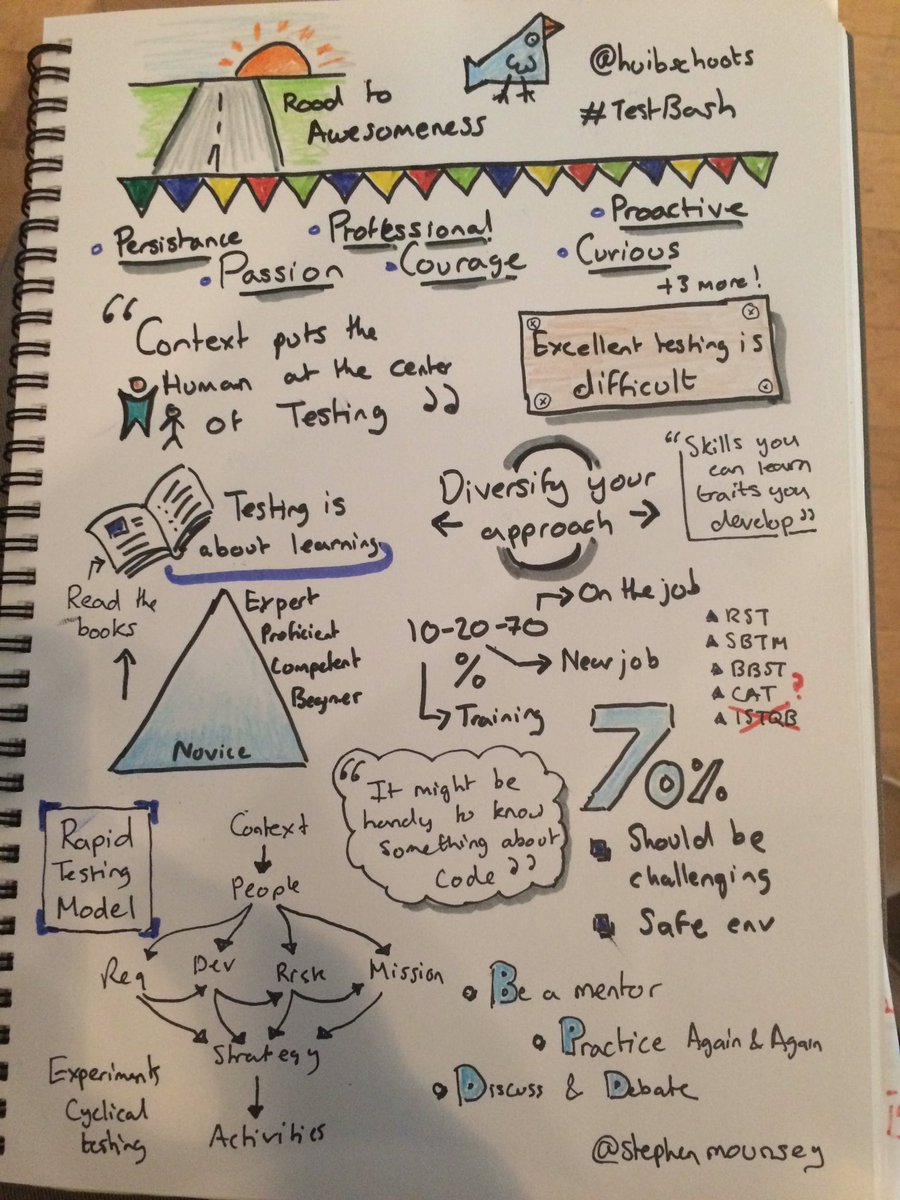 Road to
Awesomeness
@huibschoots
#TestBash
• Persistance
• Professional
• Proactive
• Passion
• Courage
• Curious
+3 more!
“Context puts the
Human at the center
of Testing”
Excellent testing is
difficult
Testing is
about learning
Read the
books
Diversify your
approach
“Skills you
can learn
traits you
develop”
Expert
Proficient
Competent
Beginer
Novice
10-20-70
%
On the job
New job
Training
RST
SBTM
BBST
CAT ?
ISTQB
70%
Should be
challenging
Safe env
“It might be
handy to know
something about
Code”
Rapid
Testing
Model
Context
People
Req
Dev
Risk
Mission
Strategy
Activities
Experiments
Cyclical
testing
• Be a mentor
• Practice Again & Again
• Discuss & Debate
@stephenmounsey